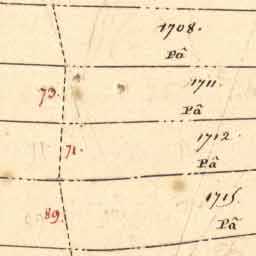 1708.
Pâ
73.
1711.
Pâ
1712
71.
Pâ
1715
89.
Pâ